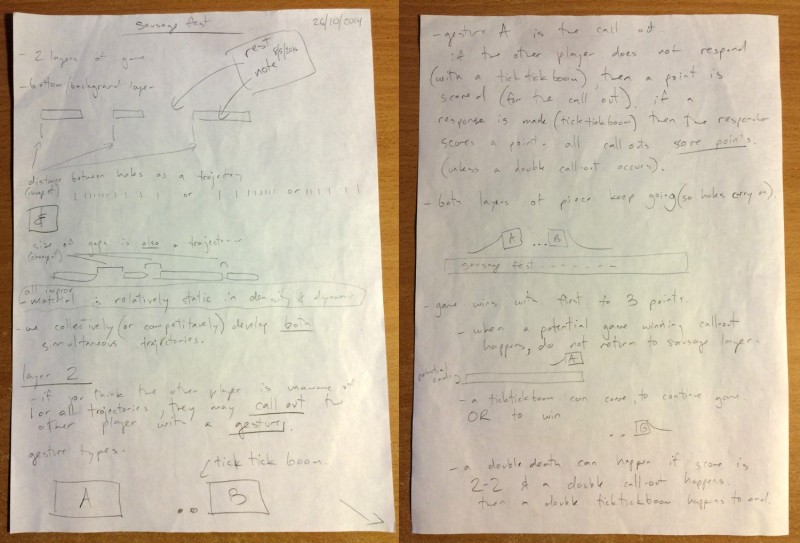 sausage fest
26/10/2014
- 2 layers of game
- bottom/background layer
rest
note
distance between holes as a trajectory
(swap of)
or
or
&
size of gaps is also a trajectory
all improv
- material is relatively static in density & dynamic
- we collectively (or competitavely) develop both
simultaneous trajectories.
layer 2
- if you think the other player is unaware of
1 or all trajectories, they may call out the
other player with a gesture.
gesture types.
tick tick boom.
A
B
- gesture A is the call out
if the other player does not respond
(with a tick tick boom), then a point is
scored (for the call out). if a
response is made (ticktickboom) then the responder
scores a point. all call outs score points.
(unless a double call-out occurs).
- both layers of piece keep going (so holes carry on).
A ... B
sausage fest - - - - - -
- game wins with first to 3 points.
- when a potential game winning callout
happens, do not return to sausage layer.
A
potential
ending
- a ticktickboom can come, to continue game.
OR to win
- a double death can happen if score is
2-2 & a double call-out happens.
then a double ticktickboom happens to end.